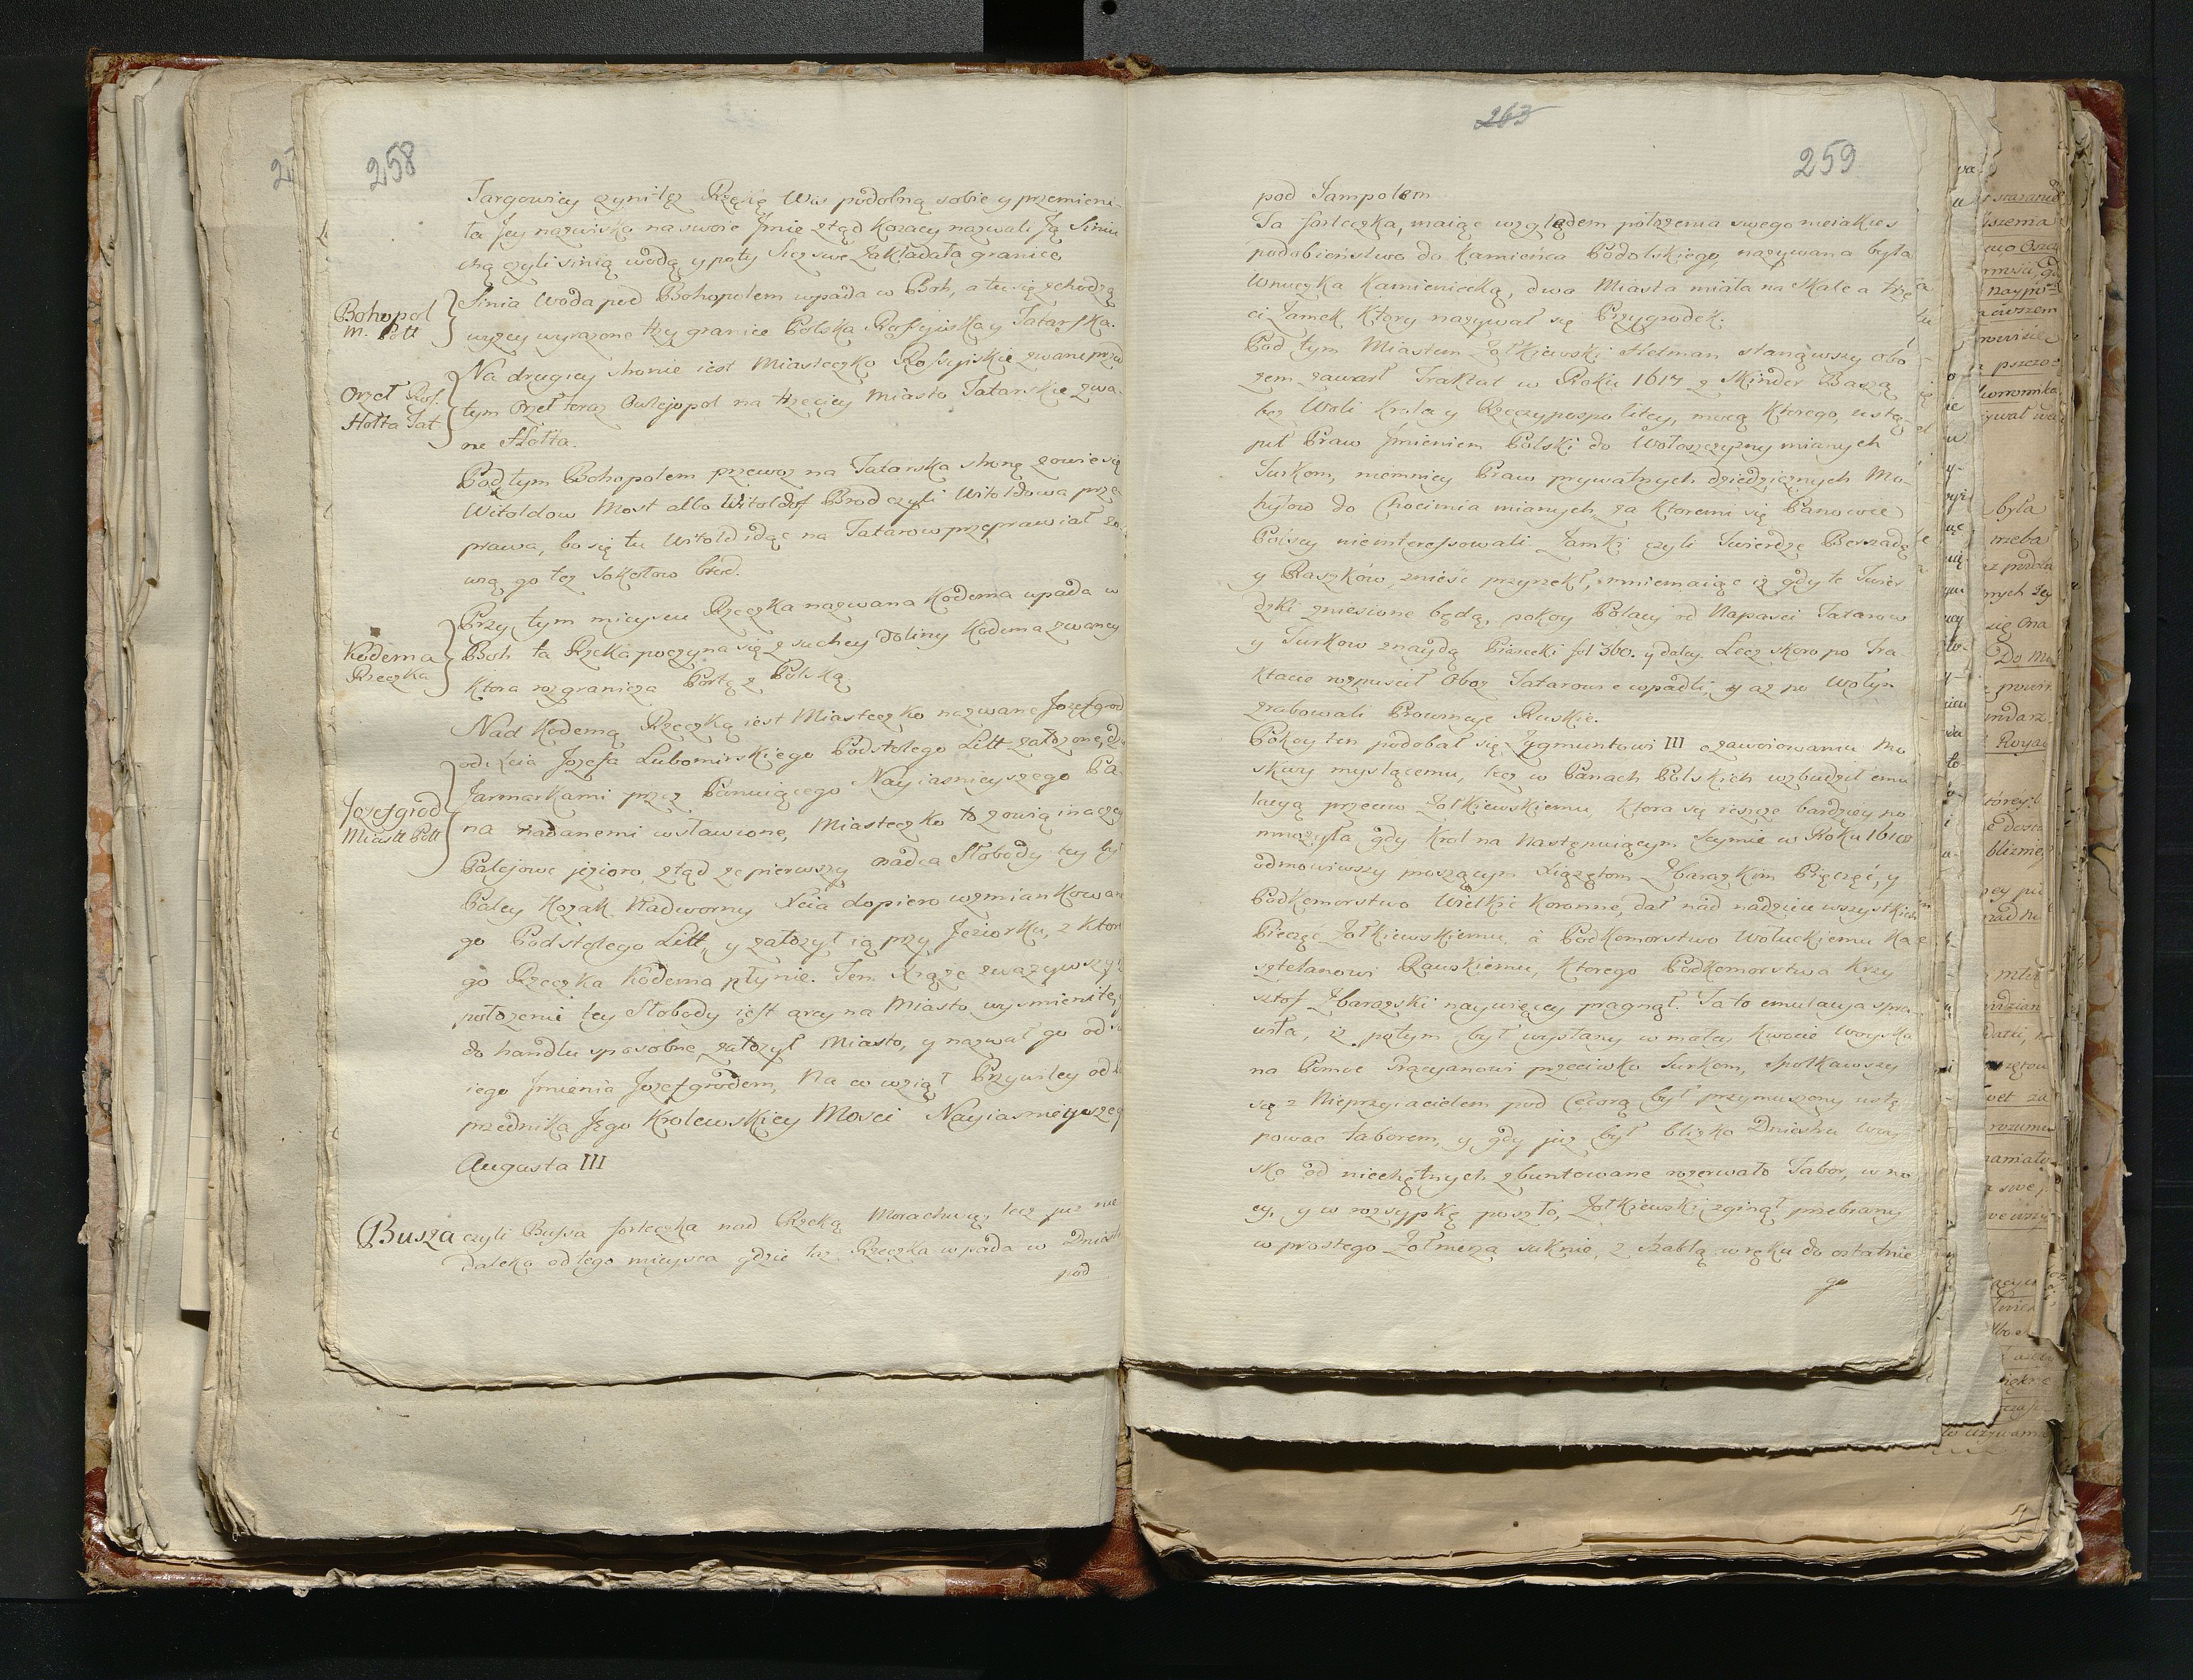 258
Targowicy czyniłą Rzęsię Wis podolną sobie y przemieni-
ła Jey nazwisko na swoie Jmie ztąd Kozacy nazwali Ją Siniu
chą czyli sinią wodą, y poty Sicz swe zakładała granice
Bohopol
M. Poll
Sinia Woda pod Bohopolem wpada w Boh, a tu się schodzą
wyzey wyrazone trzy granice Polska Rossyiska y Tatarska.
Orzeł Ros.
Hołta Tat
Na drugiey stronie iest Miasteczko Rossyiskie zwane prze
tym Orzeł teraz Owlejopol na trzeciey Miasto Tatarskie zwa-
ne Hołta.
Pod tym Bohopolem przewoz na Tatarska stronę zowie się
Witoldow Most albo Witoldof Brod czyli Witoldowa prze-
prawa, bo się tu Witold idąc na Tatarow przeprawiał zo
wią go tez Sokołow bród.
Kodema
Rzeczka
Przy tym mieyscu Rzeczka nazwana Kodema wpada w
Boh ta Rzeka poczyna się z suchey doliny Kodema zwaney
Ktora rozgranicza Portę z Polską
Nad Kodemą Rzeczką iest Miasteczko nazwane Jozefgrod
od Xcia Jozefa Lubomirskiego Podstolego Litt załozone,
Jozefgrod
Miast Poll
Jarmarkami przez Panuiącego Nayiasnieyszego Pa-
na nadanemi wsławione, Miasteczko to zowią inaczey
Palejowe jezioro, ztąd ze pierwszy osadca Słobody tey był
Paley Kozak Nadworny Xcia dopiero wzmiankowane
go Podstolego Litt, y załozył ią przy Jeziorku, z Ktore
go Rzeczka Kodema płynie. Ten Xiąze zwazywszy iz
połozenie tey Słobody iest arcy na Miasto wysmienite, y
do handlu sposobne, załozył Miasto, y nazwał go od sw
iego Jmienia Jozefgrodem, Na co wziął Przywiley od
przednika Jego Krolewskiey Mosci Nayiasnieyszego
Augusta III
Busza czyli Bussa forteczka nad Rzeką Morachwą, lecz juz nie
daleko od tego mieysca gdzie taz Rzeczka wpada w Dniestr
pod
263
259
pod Jampolem
Ta forteczka, maiąc względem połozenia swego nieiakies
podobieństwo do Kamieńca Podolskiego, nazywana była
Wnuczka Kamieniecką, dwa Miasta miała na skale a trze
ci Zamek Ktory nazywał się Przygrodek.
Pod tym Miastem Zołkiewski Hetman stanąwszy Obo
zem zawarł Traktat w Roku 1617 z Skinder Baszą
bez Woli Krola y Rzeczypospolitey, mocą Ktorego, ustą-
pił Praw Jmieniem Polski do Wołoszczyzny mianych
Turkom, niemniey Praw prywatnych dziedzicznych Mo-
hyłow do Chocimia mianych, za Ktoremi się Panowie
Polscy nieinteressowali Zamki czyli Twierdze Berszadę
y Raszków, znieść przyrzekł, mniemaiąc iz gdy te Twier
dzki zniesione będą, pokoy Polacy od Napasci Tatarow
y Turkow znaydą Piasecki fol 360. y daley. Lecz skoro po Tra
ktacie rozpuscił Oboz Tatarowie wpadli, y az po Wołyn
zrabowali Prowincye Ruskie.
Pokoy ten podobał się Zygmuntowi III o zawoiowaniu Mo
skwy myslącemu, lecz w Panach Polskich wzbudził emu
lacyą przeciw Zołkiewskiemu, Ktora się ieszcze bardziey po
mnozyła gdy Krol na Następuiącym Seymie w Roku 1618
odmowiwszy proszącym Xiązętom Zbarazkim Pieczęć, y
Podkomorstwo Wielkie Koronne, dał nad nadzieie wszystkich
Pieczęć Zołkiewskiemu, a Podkomorstwo Wołuckiemu Ka
sztelanowi Rawskiemu, Ktorego Podkomorstwa Krzy
sztof Zbarazski naywięcey pragnął. Ta to emulacya spra
wiła, iz potym był wysłany w małey Kwocie Woyska
na Pomoc Gracyanowi przeciwko Turkom, spotkawszy
się z Nieprzyiacielem pod Cecorą był przymuszony ustę
powac taborem, y gdy juz był blizko Dniestru Woy
sko od niechętnych zbuntowane rozerwało Tabor, w no
cy, y w rozsypkę poszło, Zołkiewski zginął przebrany
w prostego Zołnierza suknie, z szablą w ręku do ostatnie
go